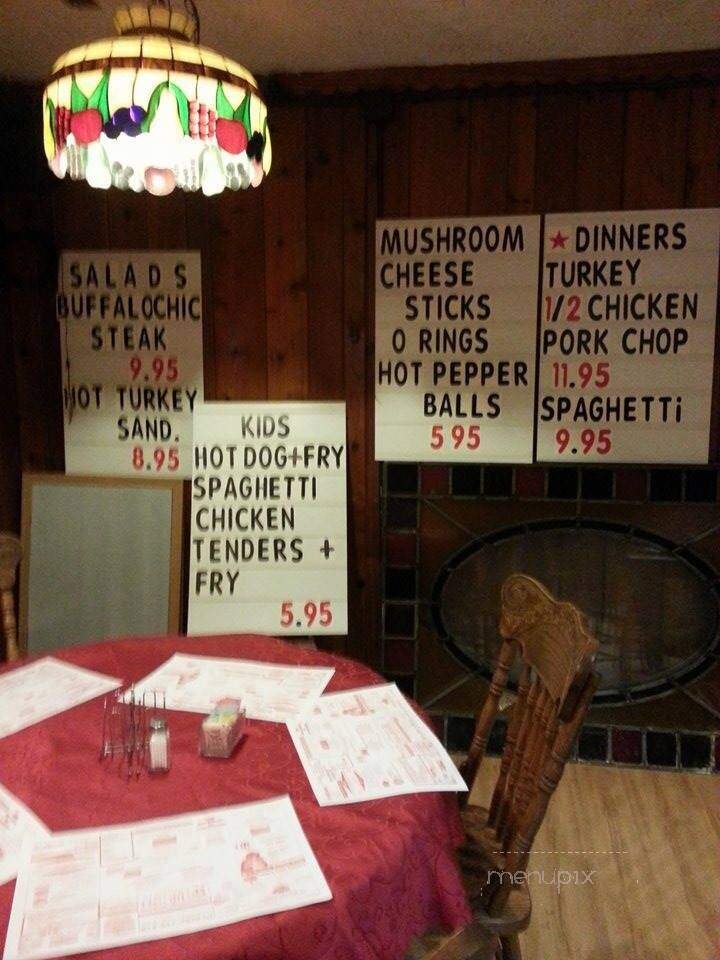 SALADS
BUFFALOCHIC
STEAK
9.95
HOT TURKEY
SAND.
8.95
KIDS
HOT DOG+FRY
SPAGHETTI
CHICKEN
TENDERS +
FRY
5.95
MUSHROOM
CHEESE
STICKS
O RINGS
HOT PEPPER
BALLS
5 95
★ DINNERS
TURKEY
1/2 CHICKEN
PORK CHOP
11.95
SPAGHETTi
9.95
menupix